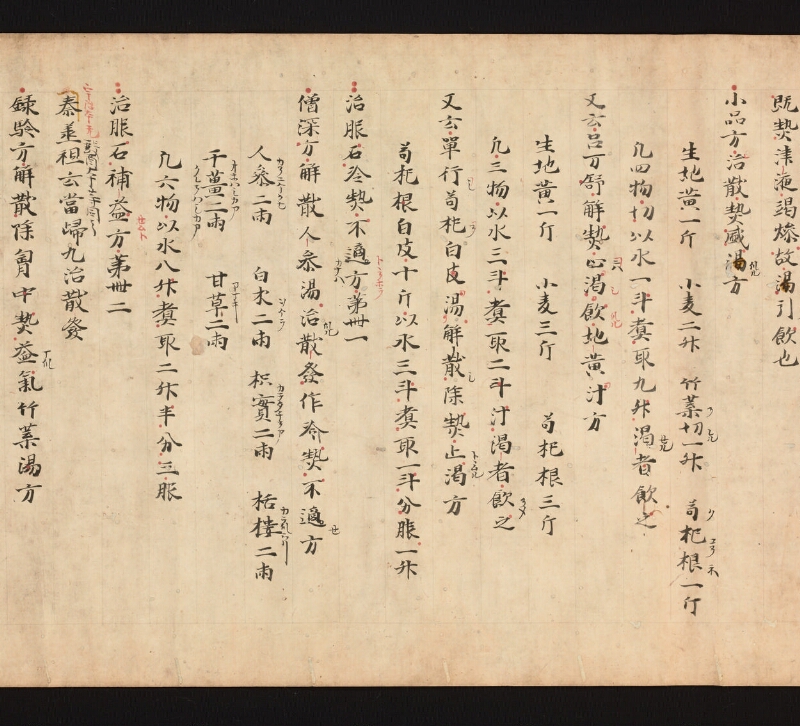 既熱津液竭燥故渇引飲也
小品方治散熱盛渇方
生地黄一斤 小麦二升 竹葉切一升 苟杞根一斤
凡四物切以水一斗煮取九升渇者飲之
又云呂万舒解熱止渇飲地黄汁方
生地黄一斤 小麦三斤 苟杞根三斤
凡三物以水三斗煮取二斗汁渇者飲之
又云單行苟杞白皮湯解散除熱止渇方
苟杞根白皮十斤以水三斗煮取一斗分服一升
治服石冷熱不適方第卌一
僧深方解散人参湯治散發作冷熱不適方
人参二兩 白朮二兩 枳實二兩 栝樓二兩
干薑二兩 甘草二兩
凡六物以水八升煮取二升半分三服
治服石補益方第卌二
秦並祖云當歸丸治散發
録験方解散除胸中熱益氣竹葉湯方